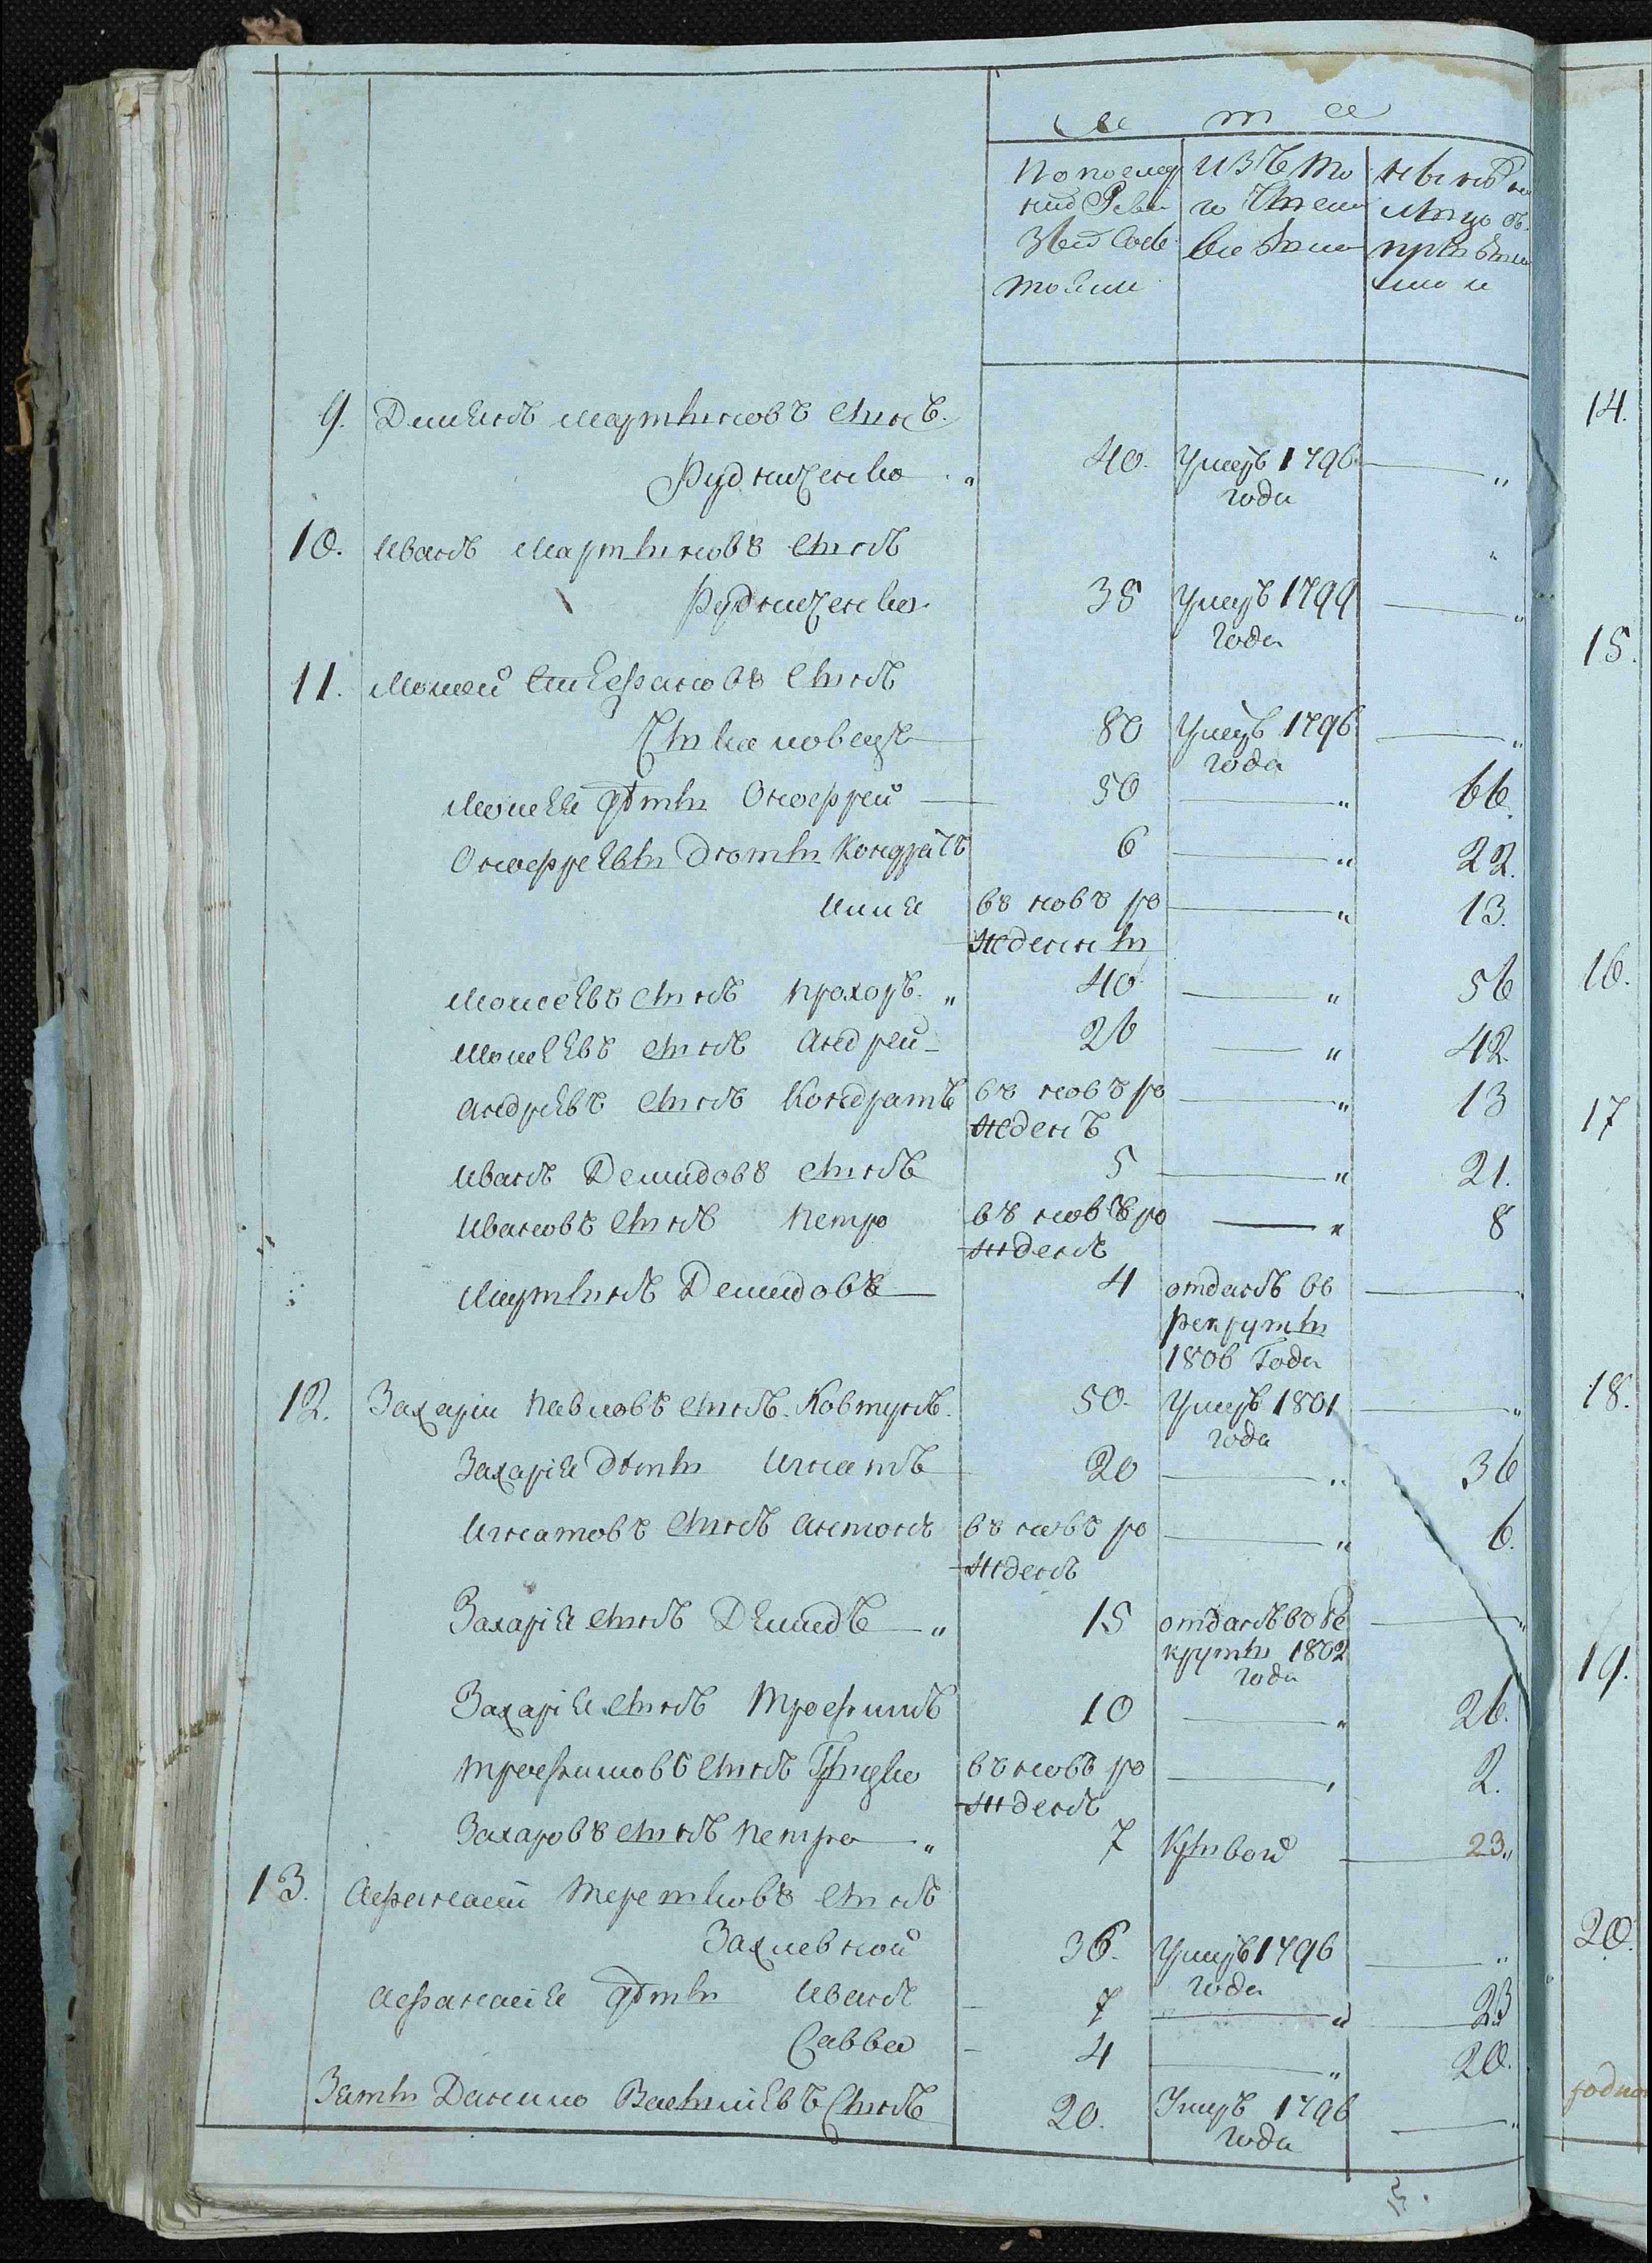 Лета
По послед изъ то ныне на
ней Реви го числа лицо
зеи состо выбыло
9. Демянъ Мартыновъ сынъ
Рудниченко 40. Умеръ 1796
года
10. Иванъ Мартыновъ сынъ
Рудниченко 38 Умеръ 1799
года
11. Моисей сынъ
80 Умеръ 1796
года
Моисея дѣти Онофрей 50 66.
Онофреевы дѣти Кондратъ 6 22.
Илия въ новъ ро 13.
жденны
Моисеевъ сынъ Прохоръ 40 56
Моисеевъ сынъ Андрей 26 42
Андреевъ сынъ Кондратъ въ новъ ро 13
жденъ
Иванъ Демидовъ сынъ 5 21.
Ивановъ сынъ Петро въ новъ ро 8
жденъ
Мартынъ Демидовъ 4 отданъ въ
рекруты
1806 Года
12. Захарій Павловъ сынъ Ковтунъ 50. Умеръ 1801
года
Захарія дѣти Игнатъ 20 36
Игнатовъ сынъ Антонъ въ новъ ро 6.
жденъ
Захарія сынъ Демидъ 15 отданъ въ ре
круты 1802
года
Захарія сынъ Трофимъ 10 26.
Трофимовъ сынъ Грицко въ новъ ро 2.
жденъ
Захаровъ сынъ Петро 7 Кривой 23
13. Афанасій Терентиовъ сынъ
36. Умеръ 1796
года
Афанасія дѣти Иванъ 7 23
Савва 4 20.
Зять Данило Васильевъ сынъ 20. Умеръ 1796
года
14.
15.
16.
17
18.
19.
20.